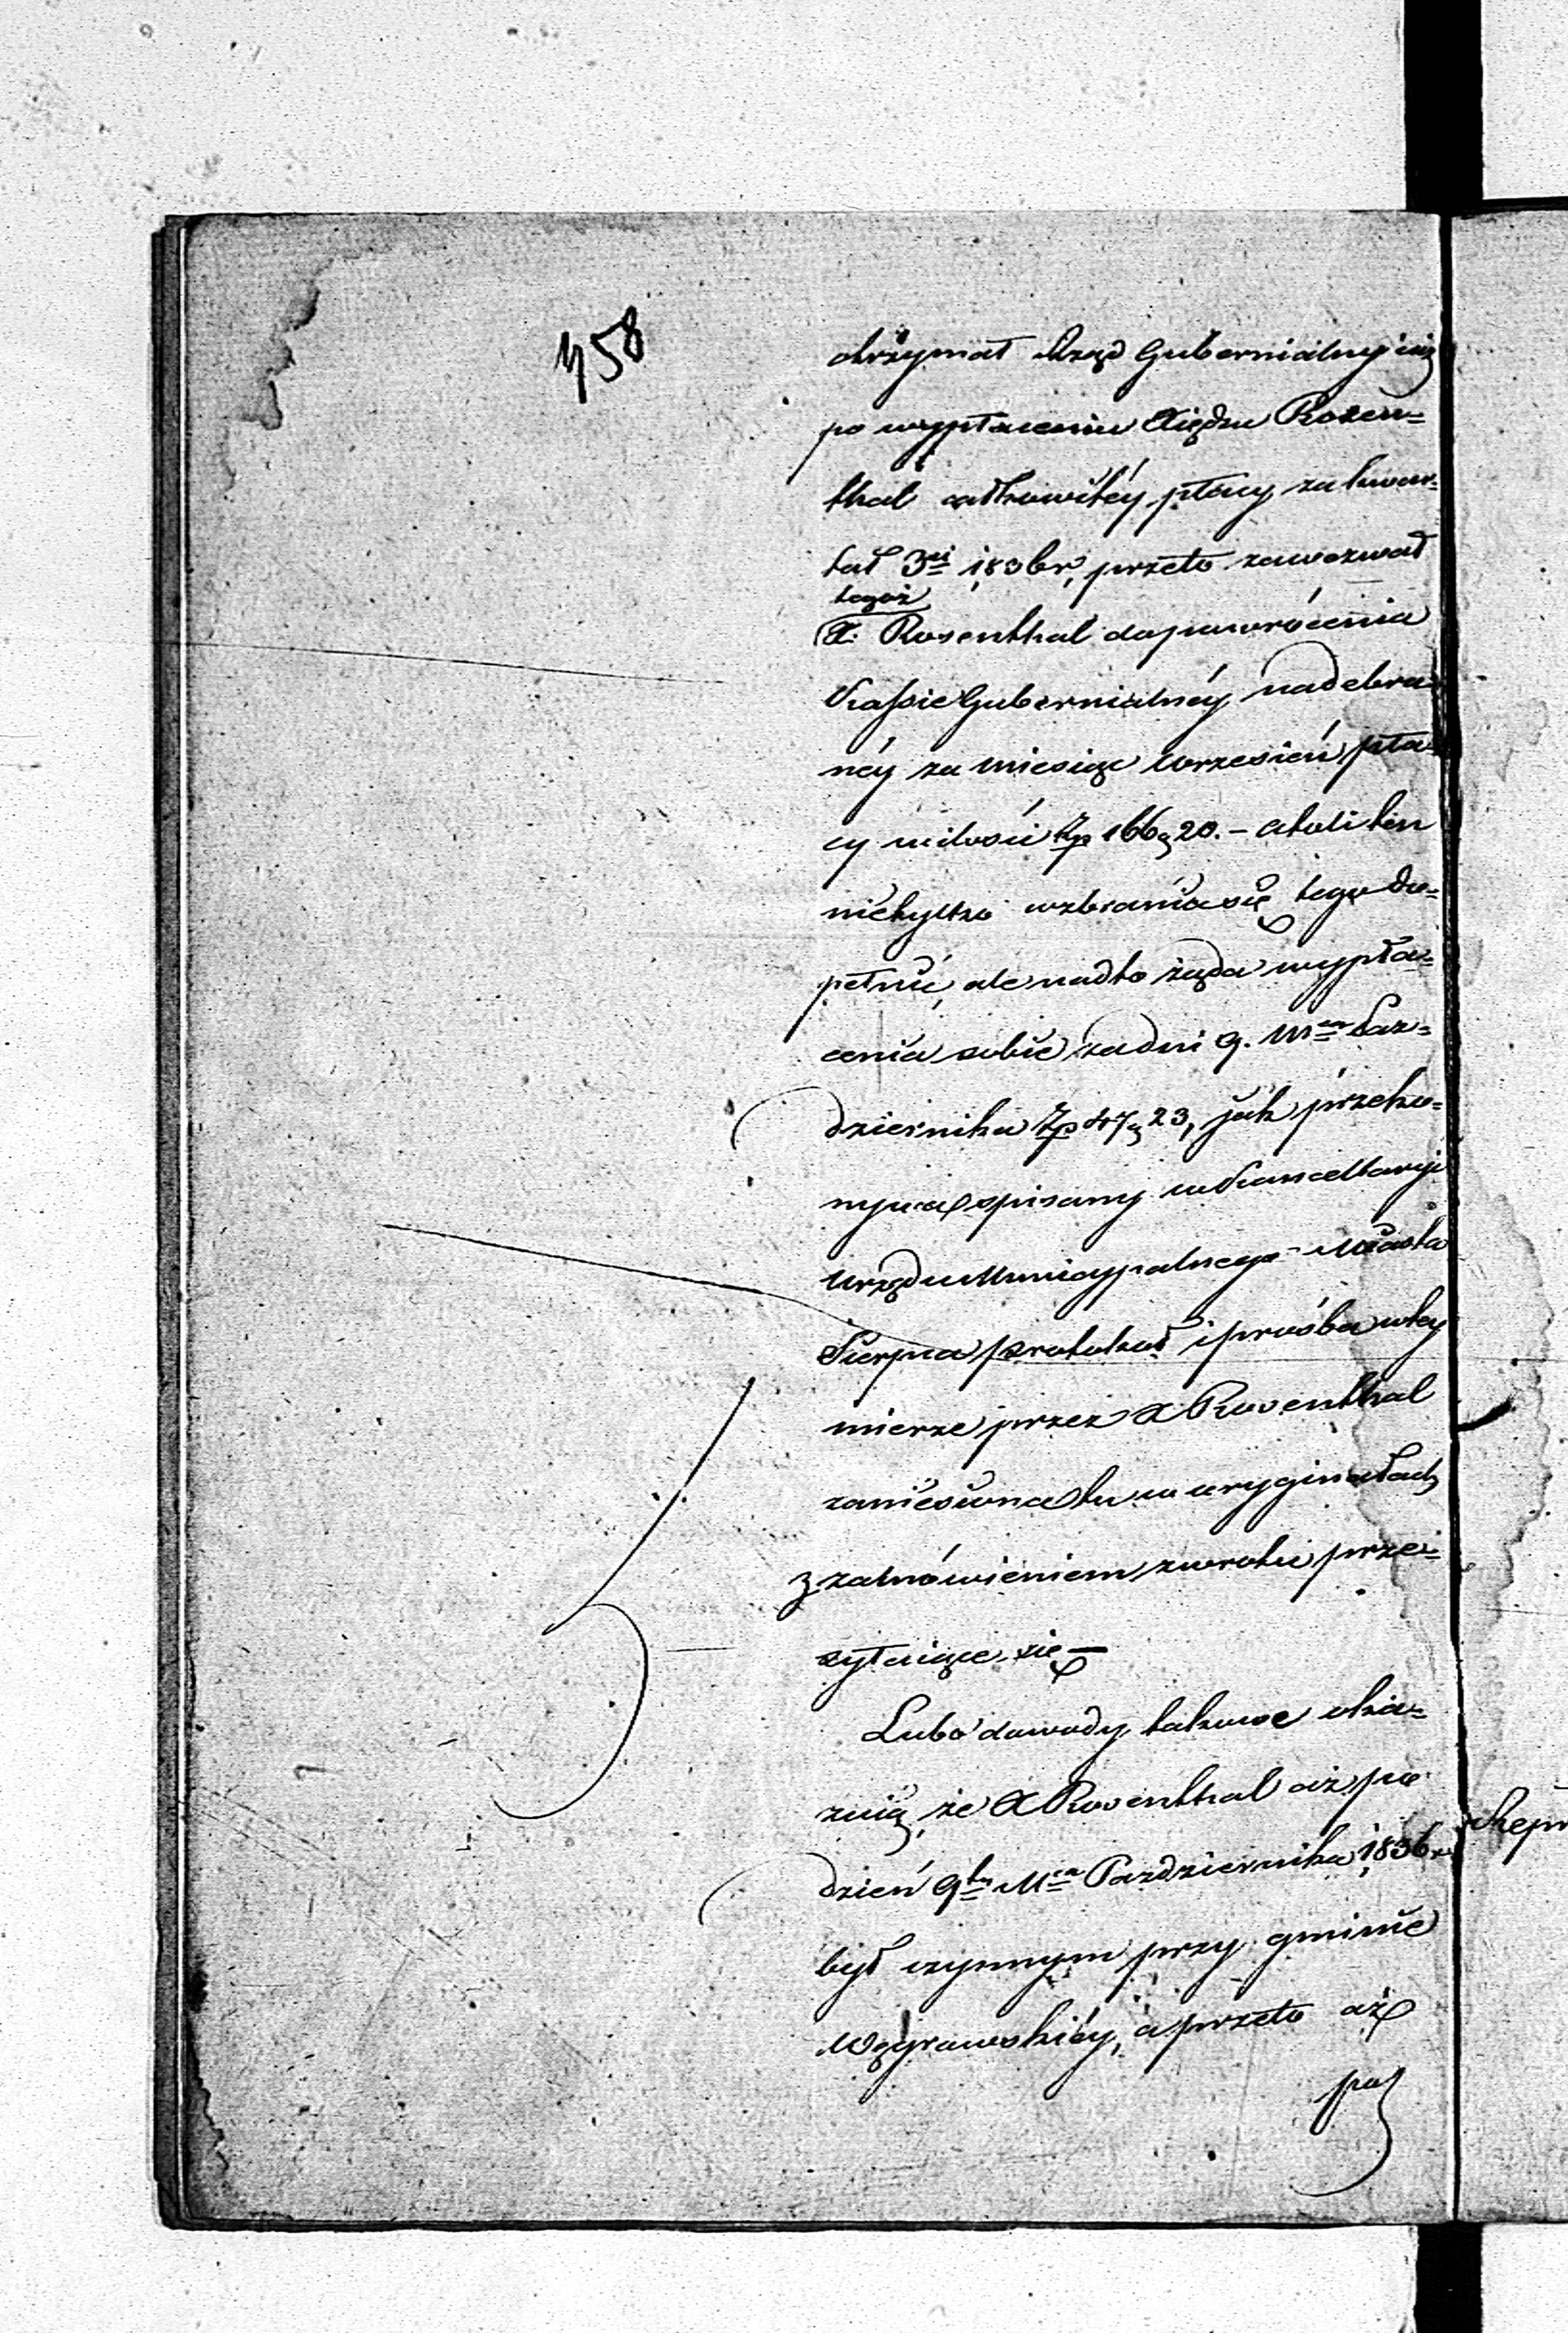 458
otrzymał Rząd Gubernialny iuż
po wypłaceniu Xiędzu Rosen=
thal całkowitéy płacy za kwar=
tał 3ci 1836 r, przeto zawezwał
tegoż
X. Rosenthal do powrócenia
Kassie Gubernialnéy nadebra=
néy za miesiąc Wrzesień pła
cy w ilości Zp 166 g 20. – atoli ten
nietylko wzbrania się tego do=
pełnić, ale nadto żąda wypła=
cenia sobie za dni 9. Mca Paz=
dziernika Zp 47 g 23, jak przeko=
nywa spisany w Kancellaryi
Urzędu Municypalnego Miasta
Sierpca protokuł i prośba w tey
mierze przez X Rosenthal
zaniesiona tu w oryginałach
z zamówieniem zwrotu prze=
syłaiące się –
Lubo dowody takowe oka=
zuią, że X Rosenthal aż po
dzień 9ty Mca Pazdziernika 1836 r
był czynnym przy gminie
Węgrowskiéy, a przeto aż
po